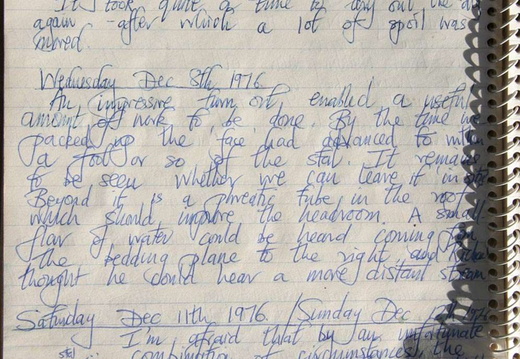 It took quite a time to dry out the dig
again after which a lot of spoil was
moved.
Wednesday Dec 8th 1976
An impressive turn out enabled a useful
amount of work to be done. By the time we
packed up the face had advanced to within
a foot or so of the stal. It remains
to be seen whether we can leave it in
Beyond it is a phreatic tube in the roof
which should improve the headroom. A small
flow of water could be heard coming from
the bedding plane to the right and
thought he could hear a more distant stream
Saturday Dec 11th 1976 / Sunday Dec
I'm afraid that by an unfortunate
combination of circumstances the